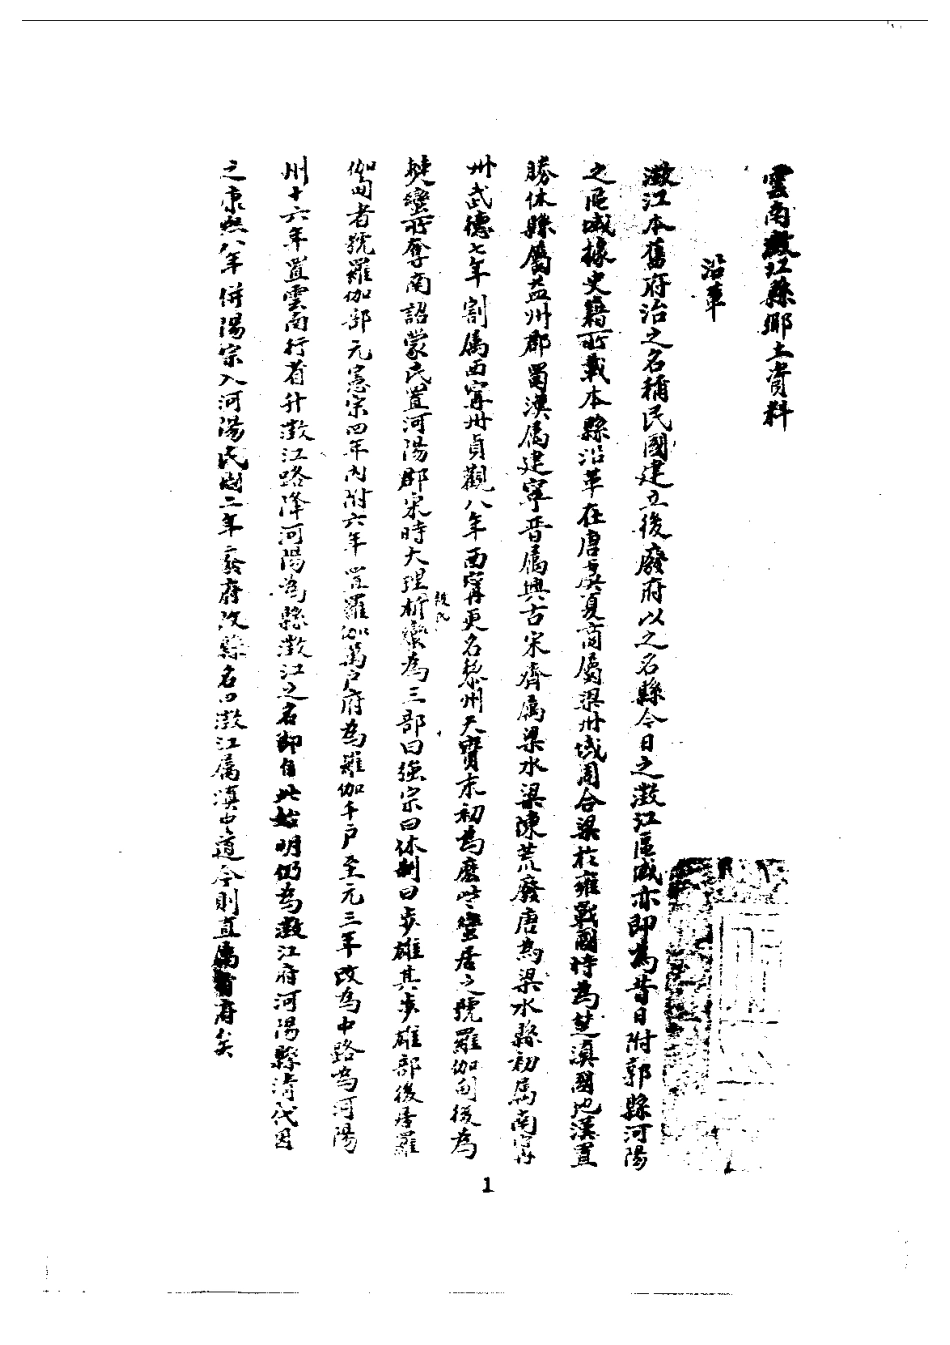 雲南澂江縣鄉土資料
沿革
澂江本舊府治之名稱民國建立後廢府以之名縣今日之澂江區域亦即為昔日附郭縣河陽
之區域據史籍所載本縣沿革在唐虞夏商屬梁州域周合梁於雍戰國時為楚滇國地漢置
勝休縣屬益州郡蜀漢屬建寧晉屬興古宋齊屬梁水梁陳荒廢唐為梁水縣初屬南寧
州武德七年割屬西寧州貞觀八年西寧更名黎州天寶末初為麽些蠻居之號羅伽甸後為
㸑蠻所奪南詔蒙氏置河陽郡宋時大理段氏析蠻為三部曰強宗曰休制曰步雄其步雄部後居羅
伽甸者號羅伽部元憲宗四年內附六年置羅伽萬戶府為羅伽千戶至元三年改為中路為河陽
州十六年置雲南行省升澂江路降河陽為縣澂江之名即自此始明仍為澂江府河陽縣清代因
之康熙八年併陽宗入河陽民國二年廢府改縣名曰澂江屬滇中道今則直屬省府矣
1